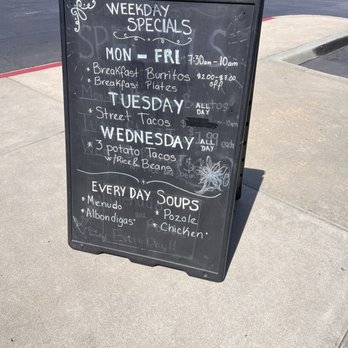 WEEKDAY
SPECIALS
MON - FRI 7:30am - 10am
* Breakfast Burritos $2.00-$3.00
* Breakfast Plates off
TUESDAY ALL DAY
* Street Tacos
WEDNESDAY ALL DAY
* 3 potato Tacos
w/Rice & Beans
EVERY DAY SOUPS
* Menudo * Pozole
* Albondigas * Chicken
Every Day!!